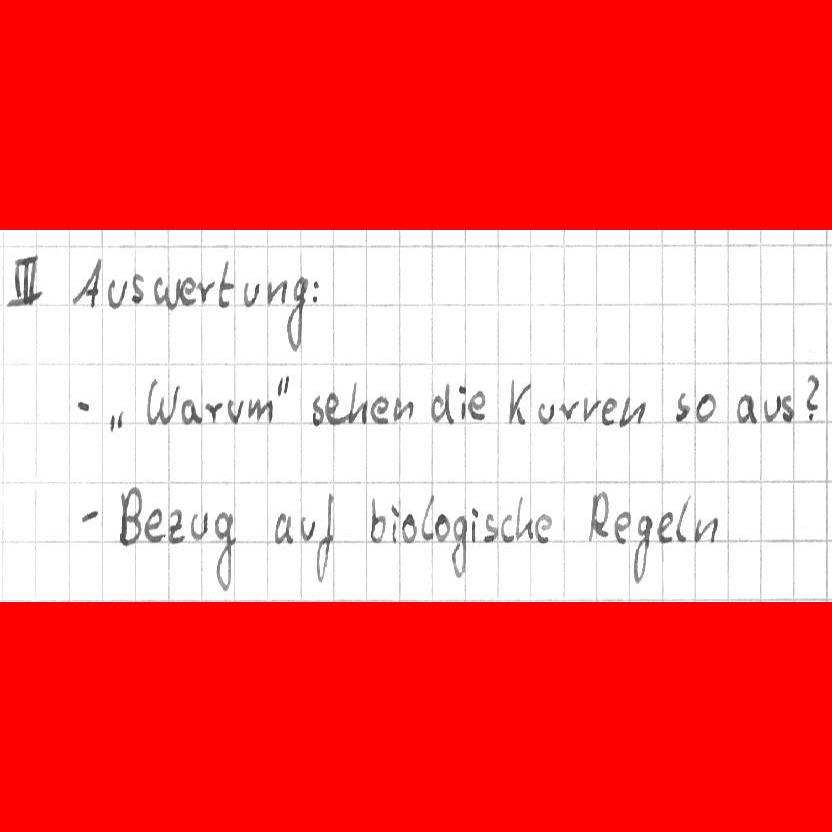 III Auswertung:
- „Warum" sehen die Kurven so aus?
- Bezug auf biologische Regeln